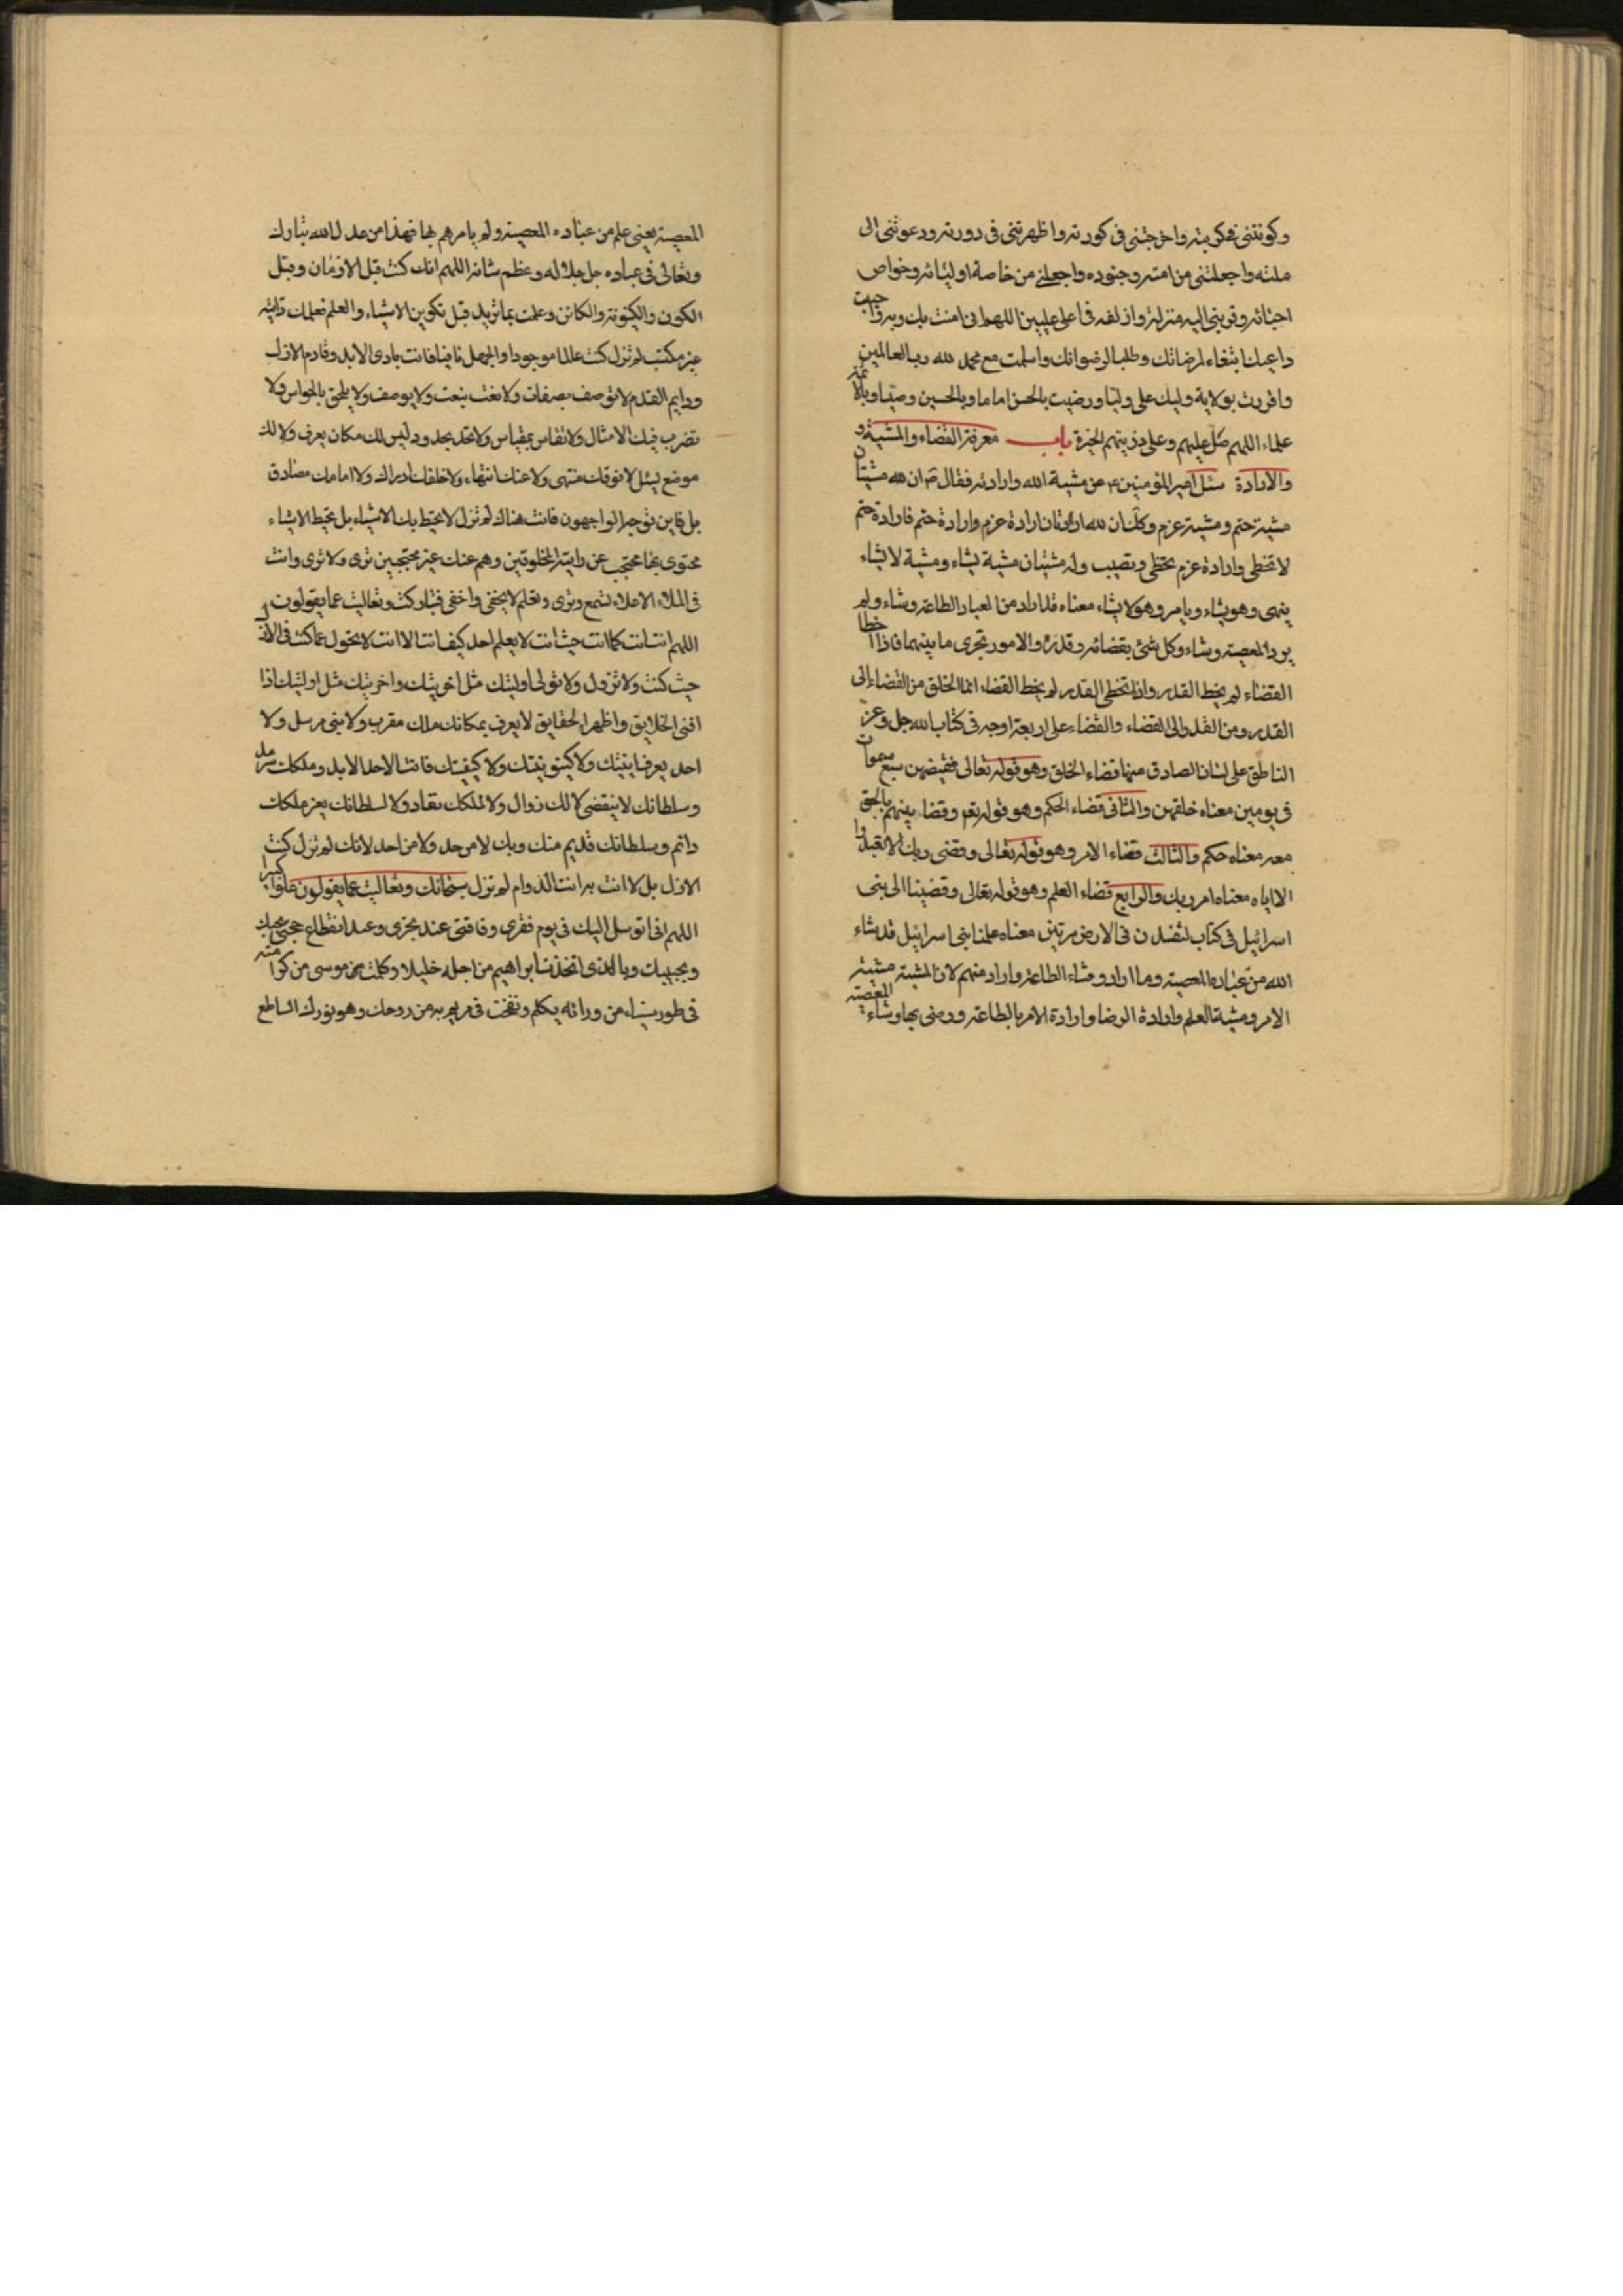 وكونتنى فى كونيته واخرجتنى فى كورته واظهرتنى فى دورته ودعوتنى الى
ملته واجعلتنى من امته وجنوده واجعلنى من خاصة اوليائه وخواص
احبائه وقربنى اليه منزلة وازلفه فى اعلى عليين اللهم انى امنت بك وبه واجبت
داعيك ابتغاء لمرضاتك وطلبا لرضوانك واسلمت مع محمد لله رب العالمين
واقررت بولاية وليك على وليا ورضيت بالحسن اماما وبالحسين وصيا وبالائمة
علماء اللهم صل عليهم وعلى ذريتهم الخيرة باب معرفة القضاء والمشية و
والارادة سئل امير المؤمنين ع عن مشية الله وارادته فقال ان لله مشيتان
مشية حتم ومشية عزم وكك ان لله ارادتان ارادة عزم وارادة حتم فارادة حتم
لا تخطى وارادة عزم تخطى وتصيب وله مشيتان مشية يشاء ومشية لا يشاء
ينهى وهو يشاء ويامر وهو لا يشاء معناه قد اراد من العباد الطاعة وشاء ولم
يرد المعصية وشاء وكل شئ بقضائه وقدره والامور تجرى ما بينهما فاذا اخطا
القضاء لم يخط القدر واذا تخطى القدر لم يخط القضاء انما الخلق من القضاء الى
القدر ومن القدر الى القضاء والقضاء على اربعة اوجه فى كتاب الله جل وعز
الناطق على لسان الصادق منها قضاء الخلق وهو قوله تعالى فقضيهن سبع سموات
فى يومين معناه خلقهن والثانى قضاء الحكم وهو قوله تعم وقضا بينهم بالحق
معه معناه حكم والثالث قضاء الامر وهو قوله تعالى وقضى ربك الا تعبدوا
الا اياه معناه امر ربك والرابع قضاء العلم وهو قوله تعالى وقضينا الى بنى
اسرائيل فى كتاب لتفسدن فى الارض مرتين معناه علمنا بنى اسرائيل قد شاء
الله من عباده المعصية وما اراد وشاء الطاعة واراد منهم لان المشية مشية
الامر ومشية العلم وارادة الرضا وارادة الامر بالطاعة ورضى بها وشاء المعصية
المعصية يعنى علم من عباده المعصية ولم يامرهم بها فهذا من عدل الله تبارك
وتعالى فى عباده جل جلاله وعظم شانه اللهم انك كنت قبل الازمان وقبل
الكون والكينونة والكائن وعلمت بما تريد قبل تكوين الاشياء والعلم فعلمك ذاتيه
غير مكتسب لم تزل كنت عالما موجودا والجهل نافيا فانت بادى الابد وقادم الازل
ودايم القدم لا توصف بصفات ولا تنعت بنعت ولا يوصف ولا يلحق بالحواس ولا
تضرب فيك الامثال ولا تقاس بمقياس ولا تحد بحدود ليس لك مكان يعرف ولا لك
موضع يسئل لا فوقك منتهى ولا عنك انتهاء ولا خلفك ادراك ولا امامك مصادق
بل فاين توجه الواجهون فانت هناك لم تزل لا تحيط بك الاشياء بل تحيط الاشياء
محتوى بها محتجب عن رايته المخلوقين وهم عنك غير محتجبين ترى ولا ترى وانت
فى الملاء الاعلاء تسمع وترى وتعلم لا يخفى واخفى فتباركت وتعاليت عما يقولون
اللهم انت انت كما انت حيث انت لا يعلم احد كيف انت الا انت لا تحول عما كنت فى الازل
حيث كنت ولا تزول ولا تولى اوليتك مثل اخريتك واخريتك مثل اوليتك اذا
افنى الخلايق واظهر الحقايق لا يعرف بمكانك ملك مقرب ولا بنى مرسل ولا
احد يعرف اينيتك ولا كينونيتك ولا كيفيتك فانت الاحد الابد وملكك سرمد
وسلطانك لا ينقضى لا لك زوال ولا لملكك نفاد ولا لسلطانك يعز ملكك
دائم وسلطانك قديم منك وبك لا من حد ولا من احد لانك لم تزل كنت
الازل بل لا انت به انت الدوام لم تزل سبحانك وتعاليت عما يقولون علوا كبيرا
اللهم انى اتوسل اليك فى يوم فقرى وفاقتى عند عجزى وعند انقطاع حجتى بحبك
وبحبيبك وبالذى اتخذت ابراهيم من اجله خليلا وكلمت من موسى من كرامته
فى طور سيناء من ورائه يكلم ونفخت فى مريم به من روحك وهو نورك الساطع